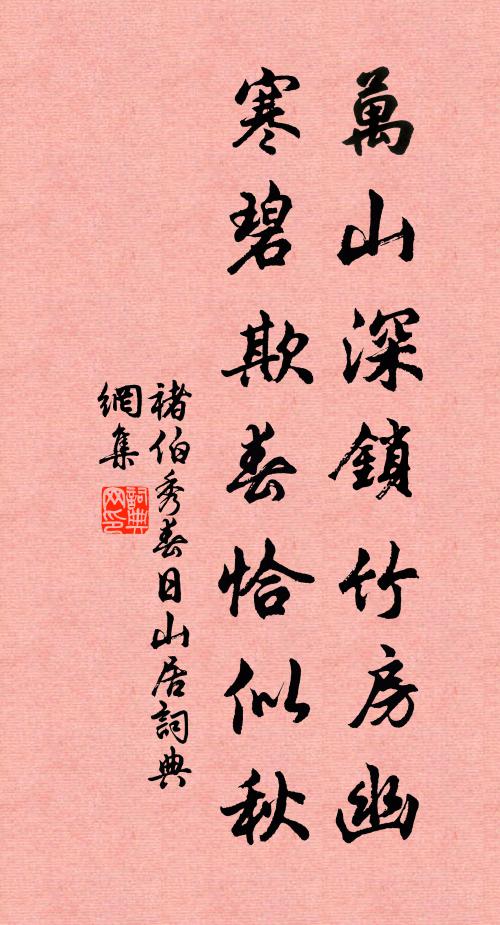 萬山深鎖竹房幽
寒碧欺春恰似秋
褚伯秀春日山居詞典
網集
詞典
网印